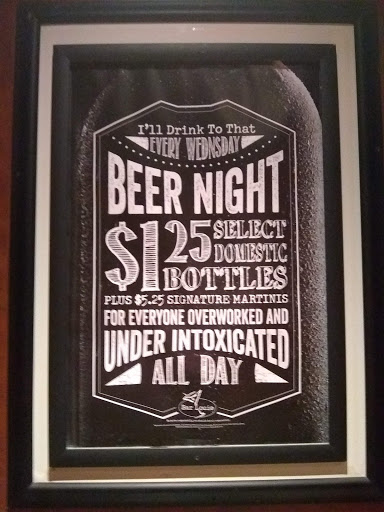 I'll Drink To That
EVERY WEDNSDAY
BEER NIGHT
$1 25 SELECT
DOMESTIC
BOTTLES
PLUS $5.25 SIGNATURE MARTINIS
FOR EVERYONE OVERWORKED AND
UNDER INTOXICATED
ALL DAY
Bar Louie